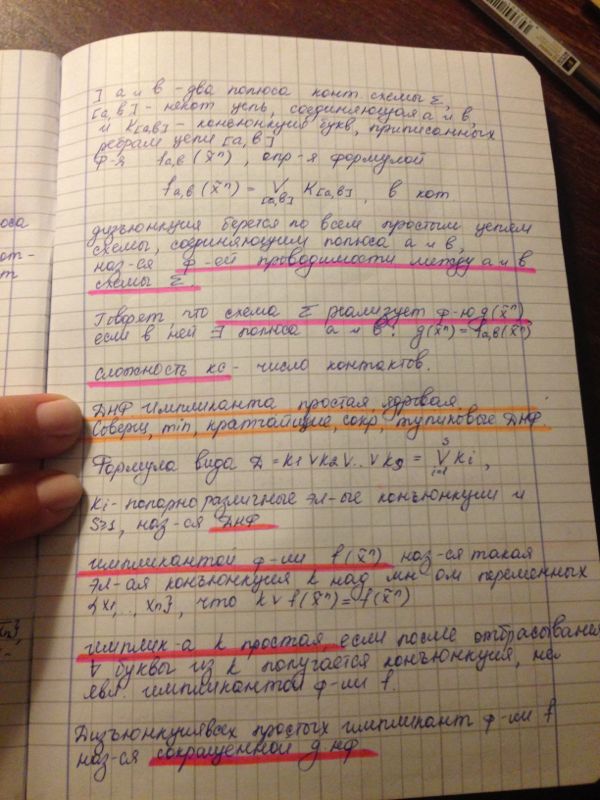 ] a и в - два полюса конт схемы Σ,
[a,в] - некот цепь, соединяющая a и в,
и K[a,в] - конъюнкция букв, приписанных
ребрам цепи [a,в]
ф-я fa,в(x̃ⁿ), опр-я формулой
fa,в(x̃ⁿ) = ∨[a,в] K[a,в], в кот
дизъюнкция берется по всем простым цепям
схемы, соединяющим полюса a и в,
наз-ся ф-ей проводимости между a и в
схемы Σ.
Говорят что схема Σ реализует ф-ю g(x̃ⁿ)
если в ней ∃ полюса a и в: g(x̃ⁿ) = fa,в(x̃ⁿ)
сложность кс - число контактов.
ДНФ импликанта простая, ядровая.
Соверш, min, кратчайшие, сокр, тупиковые ДНФ.
Формула вида D = K1 ∨ K2 ∨ .. ∨ Ks = ∨ˢi=1 Ki,
Ki - попарно различные эл-ые конъюнкции и
S≥1, наз-ся ДНФ
импликантой ф-ии f(x̃ⁿ) наз-ся такая
эл-ая конъюнкция K над мн-ом переменных
{x1,.., xn}, что K ∨ f(x̃ⁿ) = f(x̃ⁿ)
имплик-а K простая, если после отбрасывания
∀ буквы из K получается конъюнкция, не
явл. импликантой ф-ии f.
Дизъюнкция всех простых импликант ф-ии f
наз-ся сокращенной днф